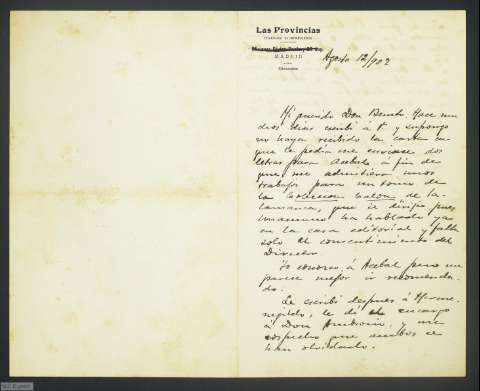 Las Provincias
MADRID
Agosto 12/902
Mi querido Don Benito: Hace unos
dias escribí á V. y supongo
no haya recibido la carta en
que le pedia me enviase dos
letras para Acebal á fin de
que me admitiera unos
trabajos para un tomo de
la Coleccion de Sa-
lamanca, que él dirije pues
Unamuno ha hablado ya
en la casa editorial y falta
solo el consentimiento del
Director
Yo conozco á Acebal pero me
parece mejor ir recomenda-
do.
Le escribí despues á Herme-
negildo, le dí el encargo
á Don Ambrosio, y me
sospecho que ambos se
han olvidado.